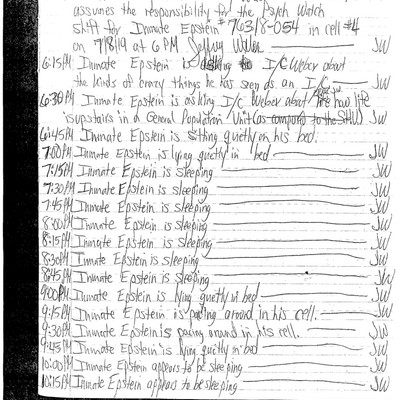 assumes the responsibility for the Psych Watch
shift for Inmate Epstein #76318-054 in cell #4
on 7/8/19 at 6 PM JW
6:15PM Inmate Epstein is I/C Weber about
the kinds of crazy things he has seen as an I/C JW
6:30PM Inmate Epstein is asking I/C Weber about how life
is upstairs in a General Population Unit (as compars to the SHU) JW
6:45PM Inmate Epstein is sitting quietly on his bed. JW
7:00PM Inmate Epstein is lying quietly in bed JW
7:15PM Inmate Epstein is sleeping JW
7:30PM Inmate Epstein is sleeping JW
7:45PM Inmate Epstein is sleeping JW
8:00PM Inmate Epstein is sleeping JW
8:15PM Inmate Epstein is sleeping JW
8:30PM Inmate Epstein is sleeping JW
8:45PM Inmate Epstein is sleeping JW
9:00PM Inmate Epstein is lying quietly in bed JW
9:15PM Inmate Epstein is pacing around in his cell. JW
9:30PM Inmate Epstein is pacing around in his cell. JW
9:45PM Inmate Epstein is lying quietly in bed JW
10:00PM Inmate Epstein appears to be sleeping JW
10:15PM Inmate Epstein appears to be sleeping JW